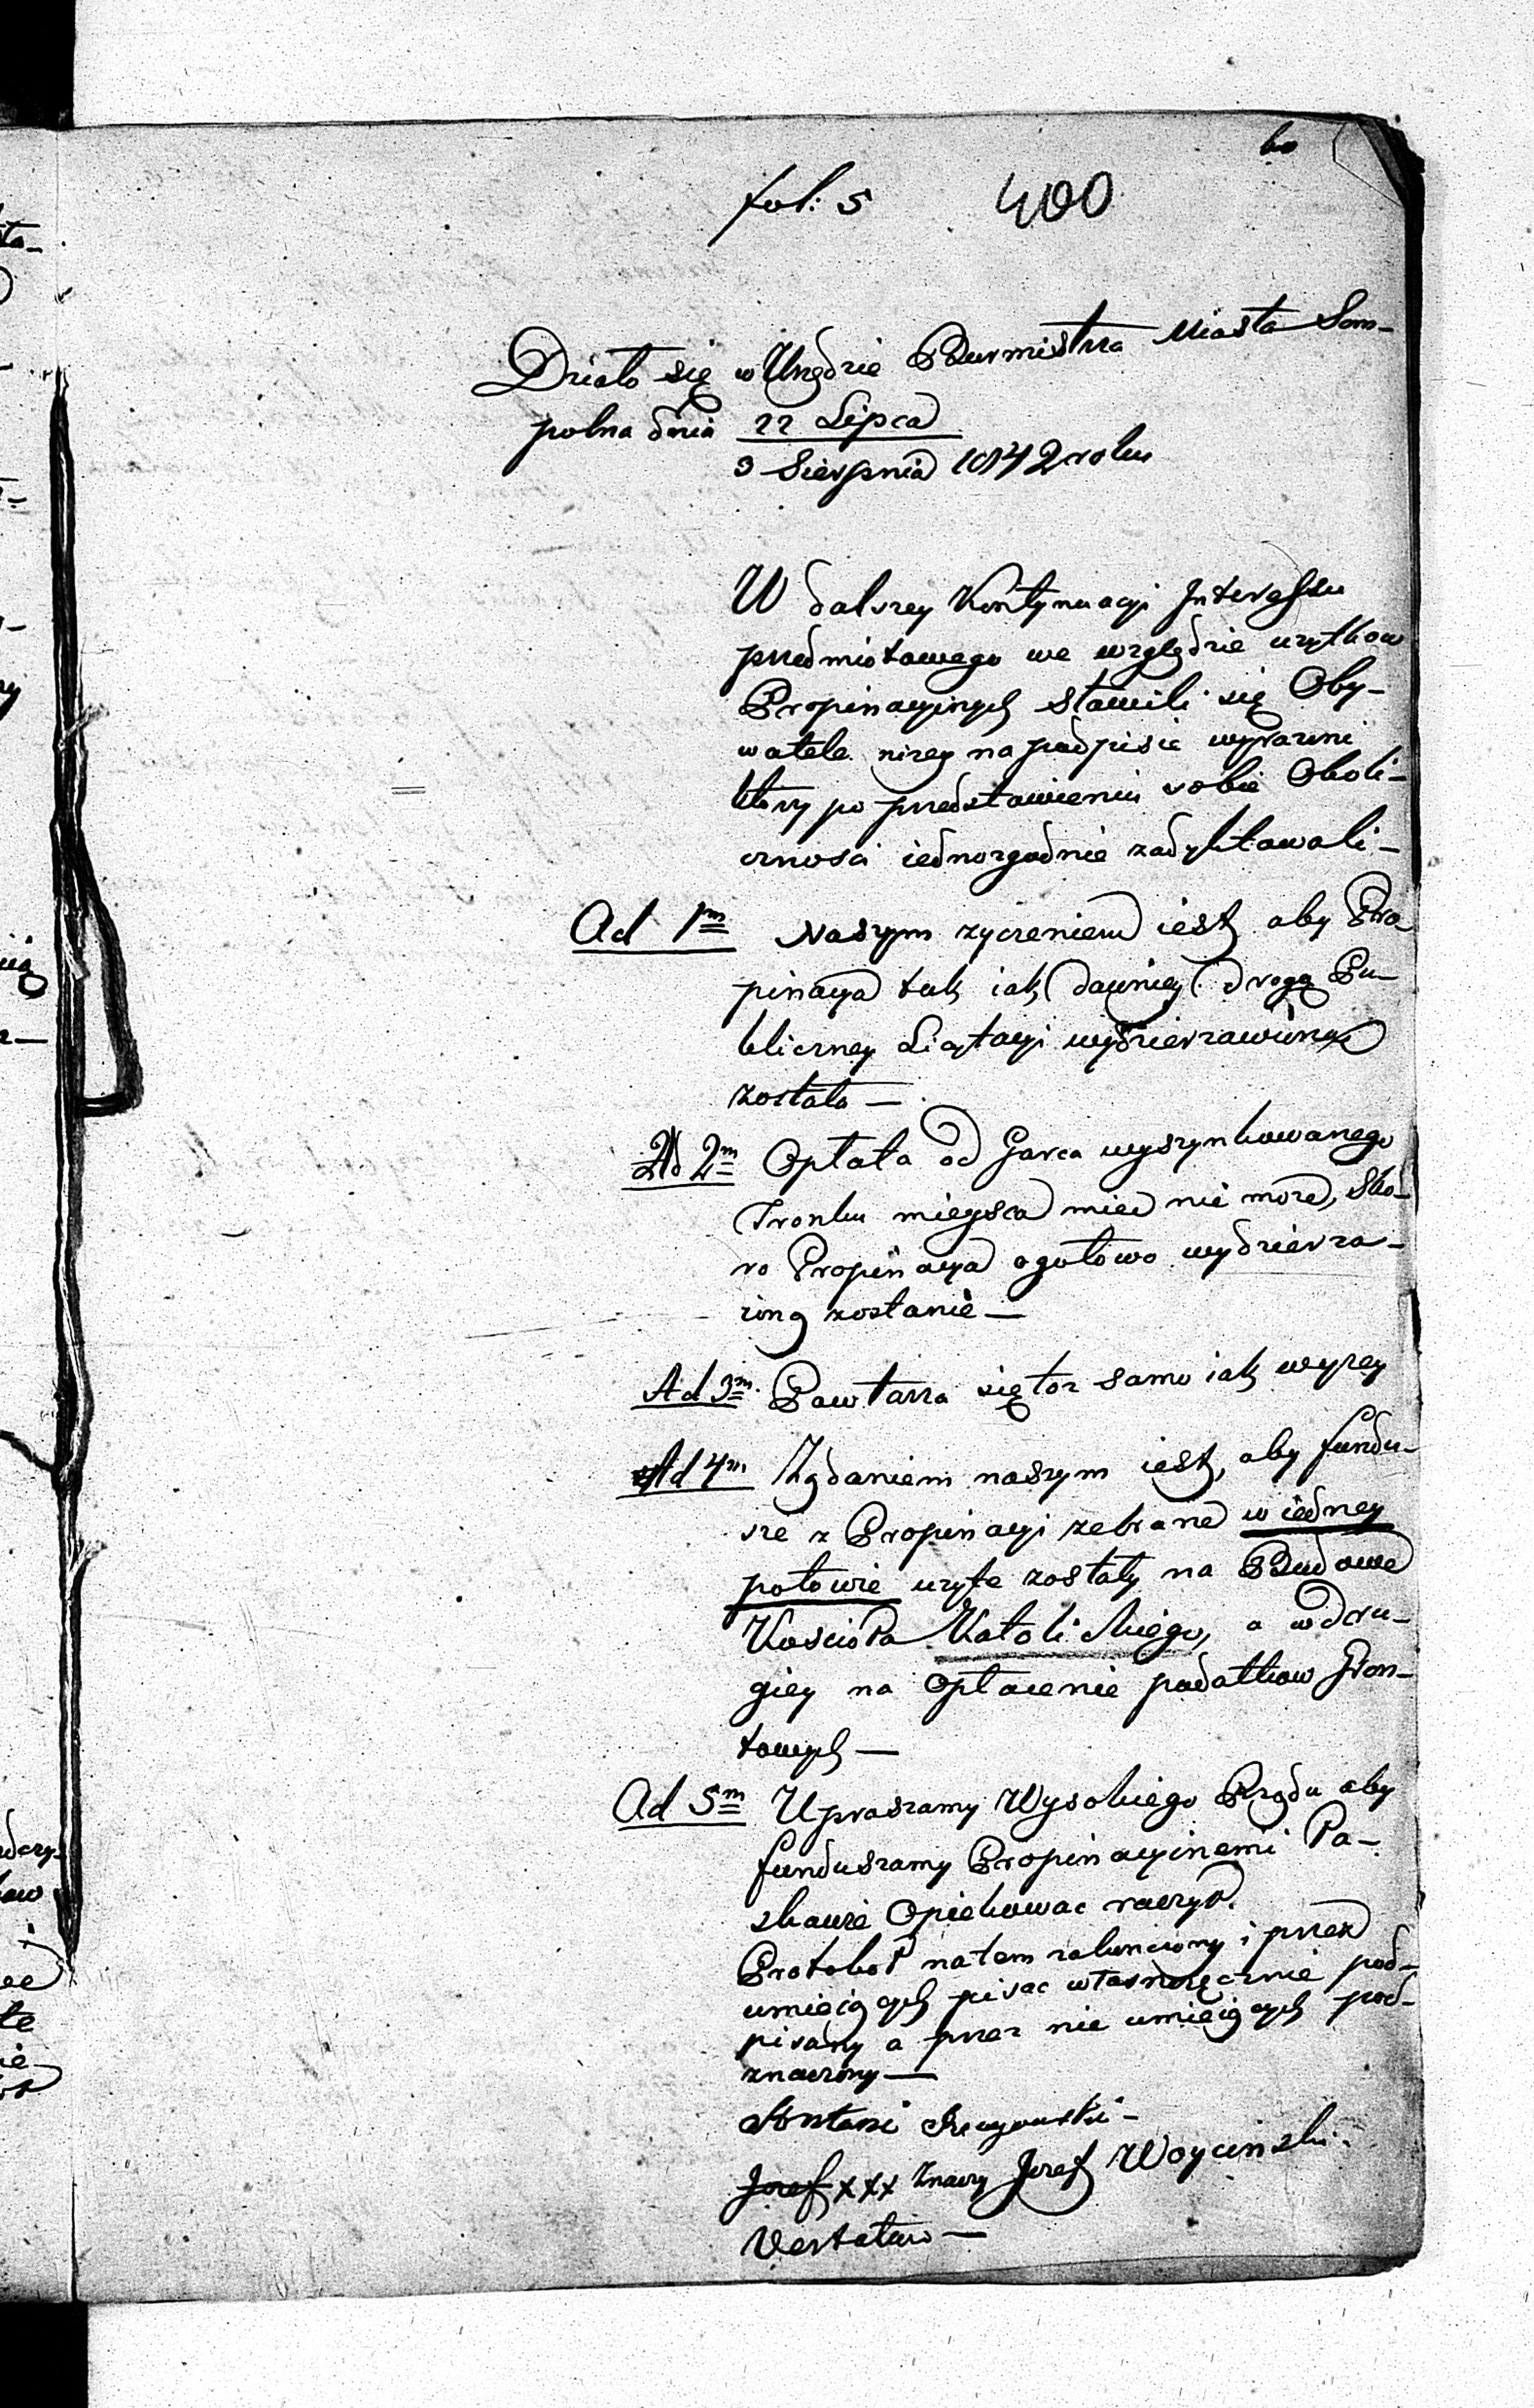 60
fol: 5 400
Działo się w Urzędzie Burmistrza Miasta Som-
polna dnia 22 Lipca
3 Sierpnia 1842 roku
W dalszey Kontynuacyi Interessu
przedmiotowego we względzie uzytkow
Propinacyinych stawili się Oby-
watele nizey na podpisie wyrazeni
ktorzy po przedstawieniu sobie Okoli-
cznosci iednozgodnie zadyktowali -
Ad 1m Naszym zyczeniem iest aby Pro
pinacya tak iak dawniey drogą Pu-
bliczney Licytacyi wydzierzawioną
została —
Ad 2m Opłata od Garca wyszynkowanego
Tronku mieysca miec nie moze, sko-
ro Propinacya ogołowo wydzierza-
zioną zostanie —
Ad 3m. Powtarza się toz samo iak wyzey
Ad 4m Zdaniem naszym iest, aby fundu-
sze z Propinacyi zebrane w iedney
połowie uzyte zostały na Budowe
Kościoła Katolickiego, a w dru-
giey na opłacenie podatkow Gron-
towych —
Ad 5m Upraszamy Wysokiego Rządu aby
funduszamy Propinacyinemi Ła-
skawie Opiekowac raczył.
Protokoł natem zakonczony i przez
umieiących pisac własnoręcznie pod-
pisany a przez nie umieiących pod-
znaczony —
Antoni
Jozef xxx Znaczy Jozef Woycinski.
Vertatur —